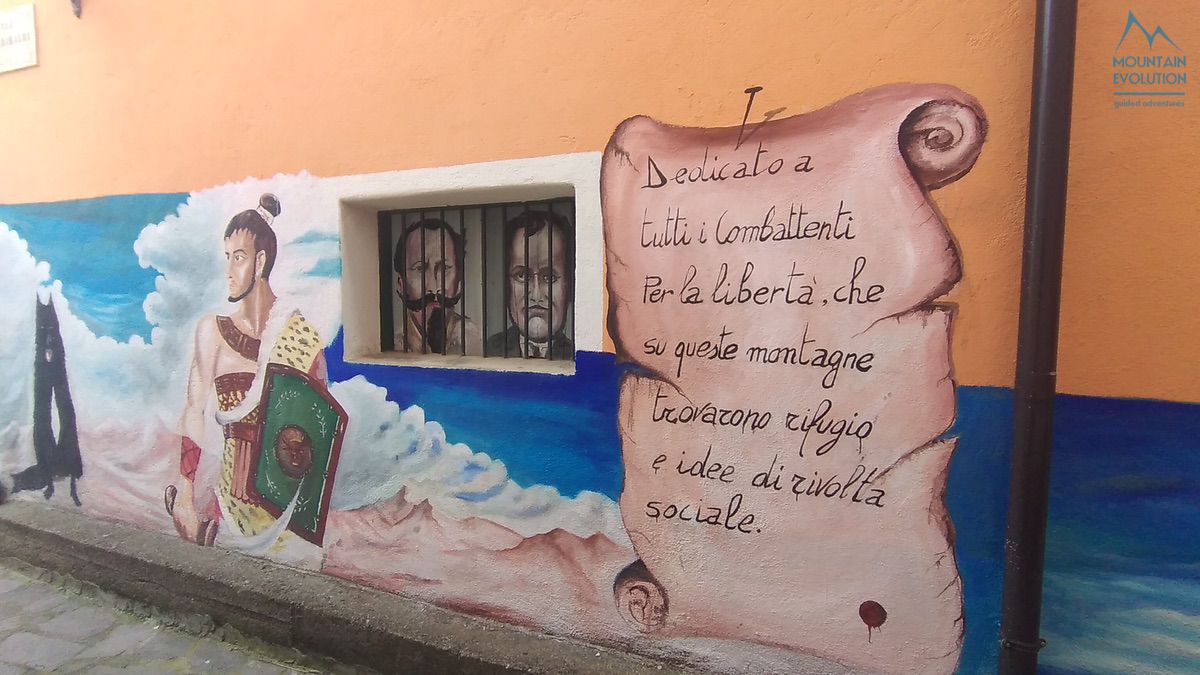 MOUNTAIN
EVOLUTION
guided adventures
Dedicato a
tutti i Combattenti
Per la libertà, che
su queste montagne
trovarono rifugio
e idee di rivolta
sociale.